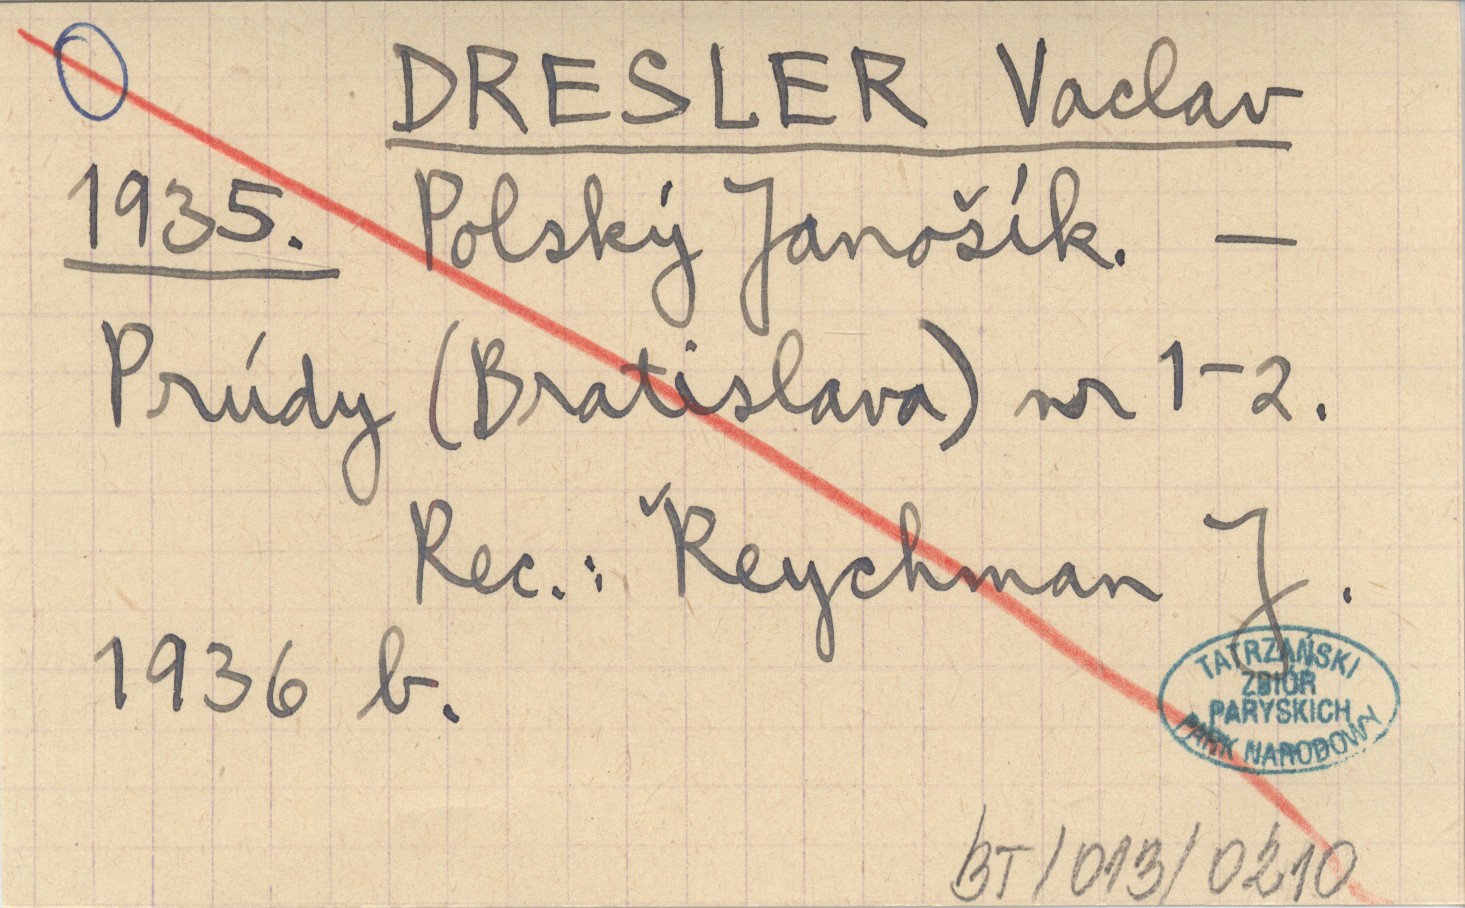 DRESLER Vaclav
1935. Polský Janošík. —
Prúdy (Bratislava) nr 1-2.
Rec.: Reychman J.
1936 b.
TATRZAŃSKI
ZBIÓR
PARYSKICH
PARK NARODOWY
BT/013/0210